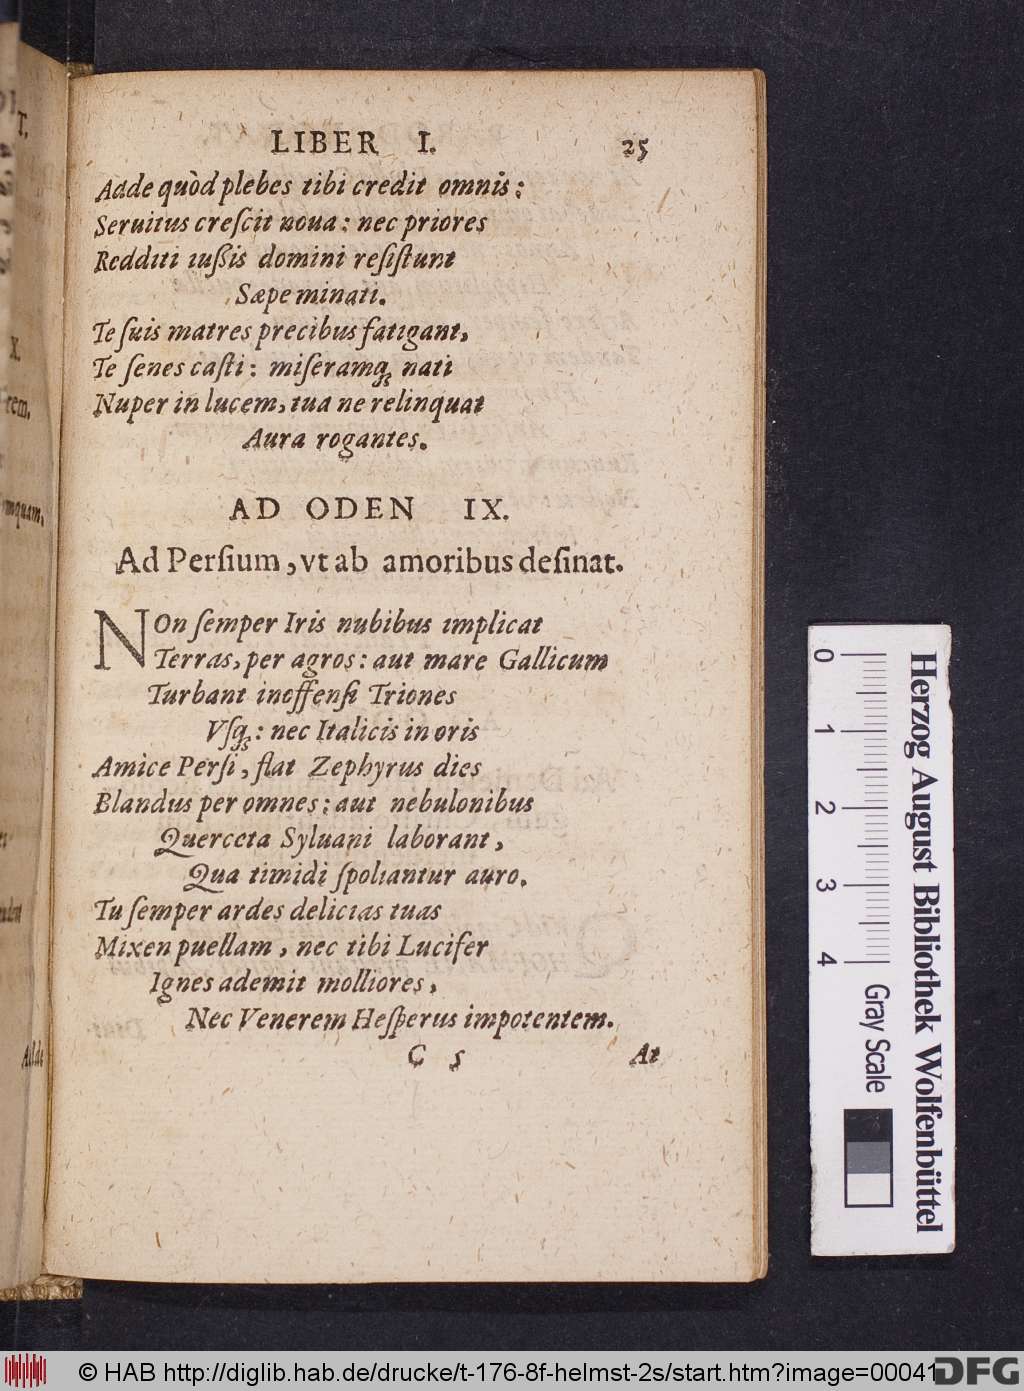 LIBER I. 25
Adde quòd plebes tibi credit omnis:
Seruitus creſcit noua: nec priores
Redditi iußis domini reſiſtunt
Sæpe minati.
Te ſuis matres precibus fatigant,
Te ſenes caſti: miſeramq́ꝫ nati
Nuper in lucem, tua ne relinquat
Aura rogantes.
AD ODEN IX.
Ad Perſium, vt ab amoribus deſinat.
NOn ſemper Iris nubibus implicat
Terras, per agros: aut mare Gallicum
Turbant inoffenſi Triones
Vſqꝫ: nec Italicis in oris
Amice Perſi, flat Zephyrus dies
Blandus per omnes: aut nebulonibus
Querceta Syluani laborant,
Qua timidi ſpoliantur auro.
Tu ſemper ardes delicias tuas
Mixen puellam, nec tibi Lucifer
Ignes ademit molliores,
Nec Venerem Heſperus impotentem.
C 5 At
T.
X.
rem.
mquam,
Adde
0 1 2 3 4
Gray Scale
Herzog August Bibliothek Wolfenbüttel
© HAB http://diglib.hab.de/drucke/t-176-8f-helmst-2s/start.htm?image=00041
DFG